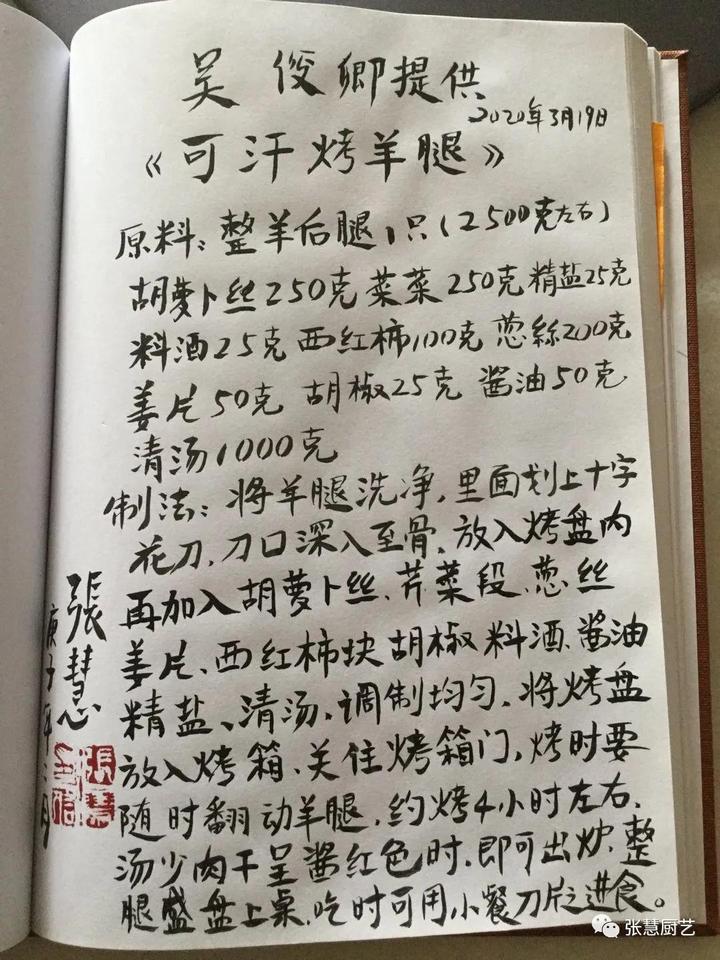 吴俊卿提供
2020年3月19日
《可汗烤羊腿》
原料:整羊后腿1只(2500克左右)
胡萝卜丝250克 菜菜250克 精盐25克
料酒25克 西红柿100克 葱絲200克
姜片50克 胡椒25克 酱油50克
清汤1000克
制法:将羊腿洗净,里面划上十字
花刀,刀口深入至骨,放入烤盘内
再加入胡萝卜丝、芹菜段、葱丝
姜片、西红柿块胡椒料酒、酱油
精盐、清汤,调制均匀,将烤盘
放入烤箱、关住烤箱门,烤时要
随时翻动羊腿,约烤4小时左右,
汤少肉干呈酱红色时,即可出炉,整
腿盛盘上桌,吃时可用小餐刀片之进食。
張慧
庚子年二月
張慧
张慧厨艺